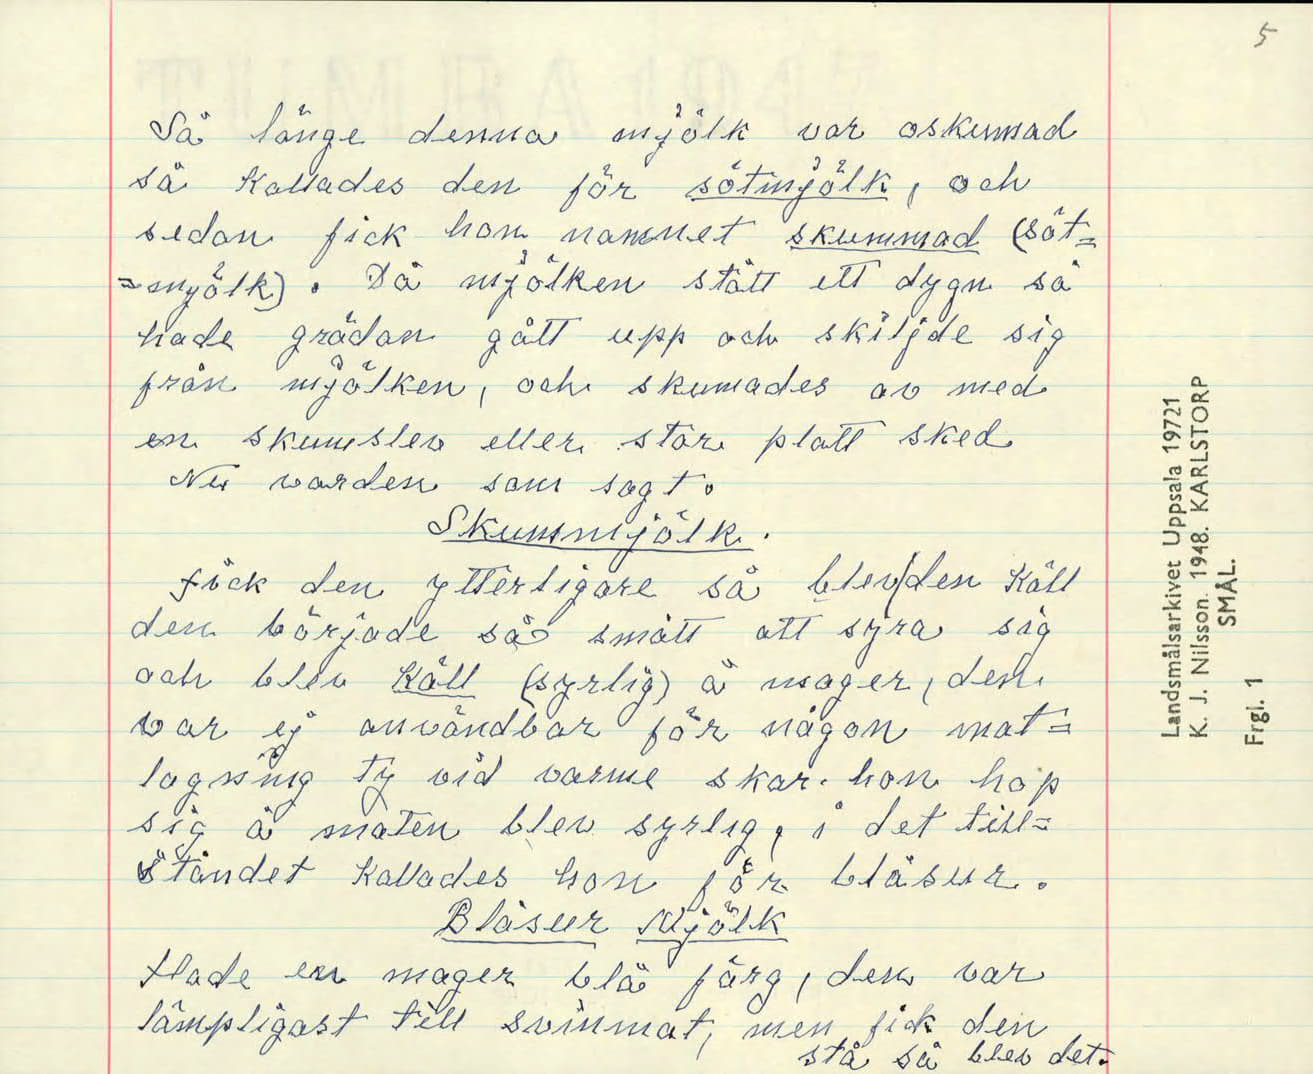 5
Så länge denna mjölk var oskummad
så kallades den för sötmjölk, och
sedan fick hon namnet skummad (söt=
=mjölk). Då mjölken stått ett dygn så
hade grädan gått upp och skiljde sig
från mjölken, och skumades av med
en skumslev eller stor platt sked
Nu varden som sagt.
Skummjölk.
Fick den ytterligare så blev den käll
den började så smått att syra sig
och blev käll (syrlig) å mager, den
var ej användbar för någon mat=
lagning ty vid varme skar hon hop
sig å maten blev syrlig, i det till=
ståndet kallades hon för blåsur.
Blåsur Mjölk
Hade en mager blå färg, den var
lämpligast till svinmat, men fick den
stå så blev det.
Landsmålsarkivet Uppsala 19721
K. J. Nilsson. 1948. KARLSTORP
SMÅL.
Frgl. 1